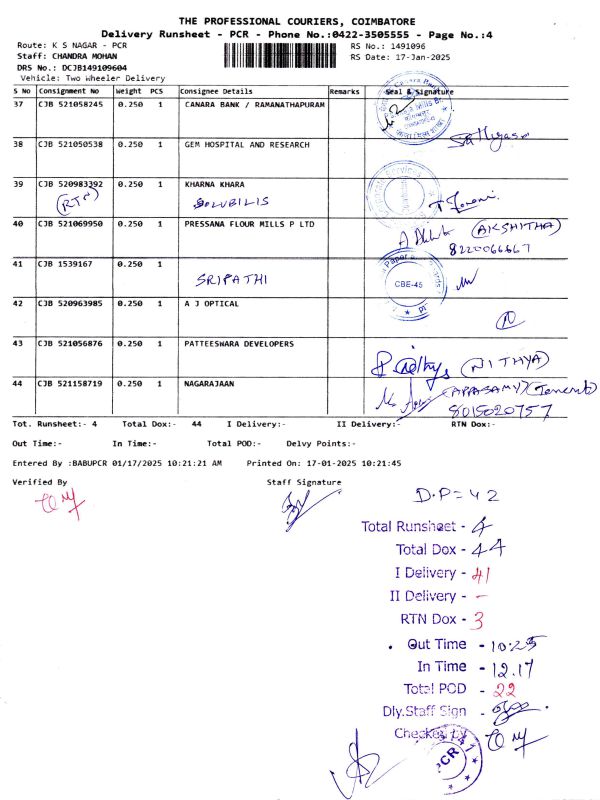 THE PROFESSIONAL COURIERS, COIMBATORE
Delivery Runsheet - PCR - Phone No.:0422-3505555 - Page No.:4
Route: K S NAGAR - PCR RS No.: 1491096
Staff: CHANDRA MOHAN RS Date: 17-Jan-2025
DRS No.: DCJB149109604
Vehicle: Two Wheeler Delivery
S No Consignment No Weight PCS Consignee Details Remarks Seal & Signature
37 CJB 521058245 0.250 1 CANARA BANK / RAMANATHAPURAM
38 CJB 521050538 0.250 1 GEM HOSPITAL AND RESEARCH
39 CJB 520983392 0.250 1 KHARNA KHARA
(RTN) SOLUBILIS
40 CJB 521069950 0.250 1 PRESSANA FLOUR MILLS P LTD
(AKSHITHA)
8220066667
41 CJB 1539167 0.250 1
SRIPATHI
CBE-45
42 CJB 520963985 0.250 1 A J OPTICAL
43 CJB 521056876 0.250 1 PATTEESWARA DEVELOPERS
(NITHYA)
44 CJB 521158719 0.250 1 NAGARAJAAN
(APPASAMY) (Tenent)
8015020757
Tot. Runsheet:- 4 Total Dox:- 44 I Delivery:- II Delivery:- RTN Dox:-
Out Time:- In Time:- Total POD:- Delvy Points:-
Entered By :BABUPCR 01/17/2025 10:21:21 AM Printed On: 17-01-2025 10:21:45
Verified By Staff Signature
D.P = 42
Total Runsheet - 4
Total Dox - 44
I Delivery - 41
II Delivery - -
RTN Dox - 3
Out Time - 10:25
In Time - 12.17
Total POD - 22
Dly.Staff Sign -
Checked by
PCR